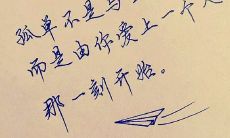 孤单不是与
而是由你爱上一个
那一刻开始。